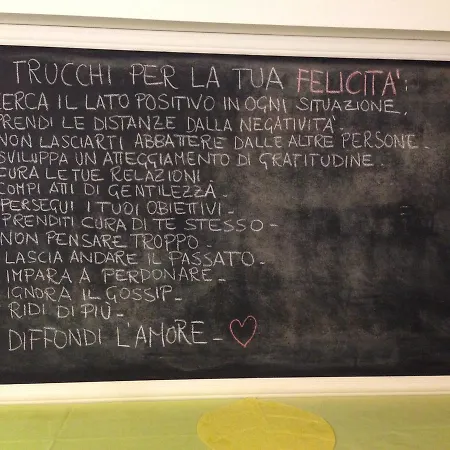 TRUCCHI PER LA TUA FELICITA':
CERCA IL LATO POSITIVO IN OGNI SITUAZIONE.
PRENDI LE DISTANZE DALLA NEGATIVITÀ.
NON LASCIARTI ABBATTERE DALLE ALTRE PERSONE -
SVILUPPA UN ATTEGGIAMENTO DI GRATITUDINE.
CURA LE TUE RELAZIONI
COMPI ATTI DI GENTILEZZA.
PERSEGUI I TUOI OBIETTIVI -
PRENDITI CURA DI TE STESSO -
NON PENSARE TROPPO -
LASCIA ANDARE IL PASSATO -
IMPARA A PERDONARE -
IGNORA IL GOSSIP -
RIDI DI PIÙ -
DIFFONDI L'AMORE -